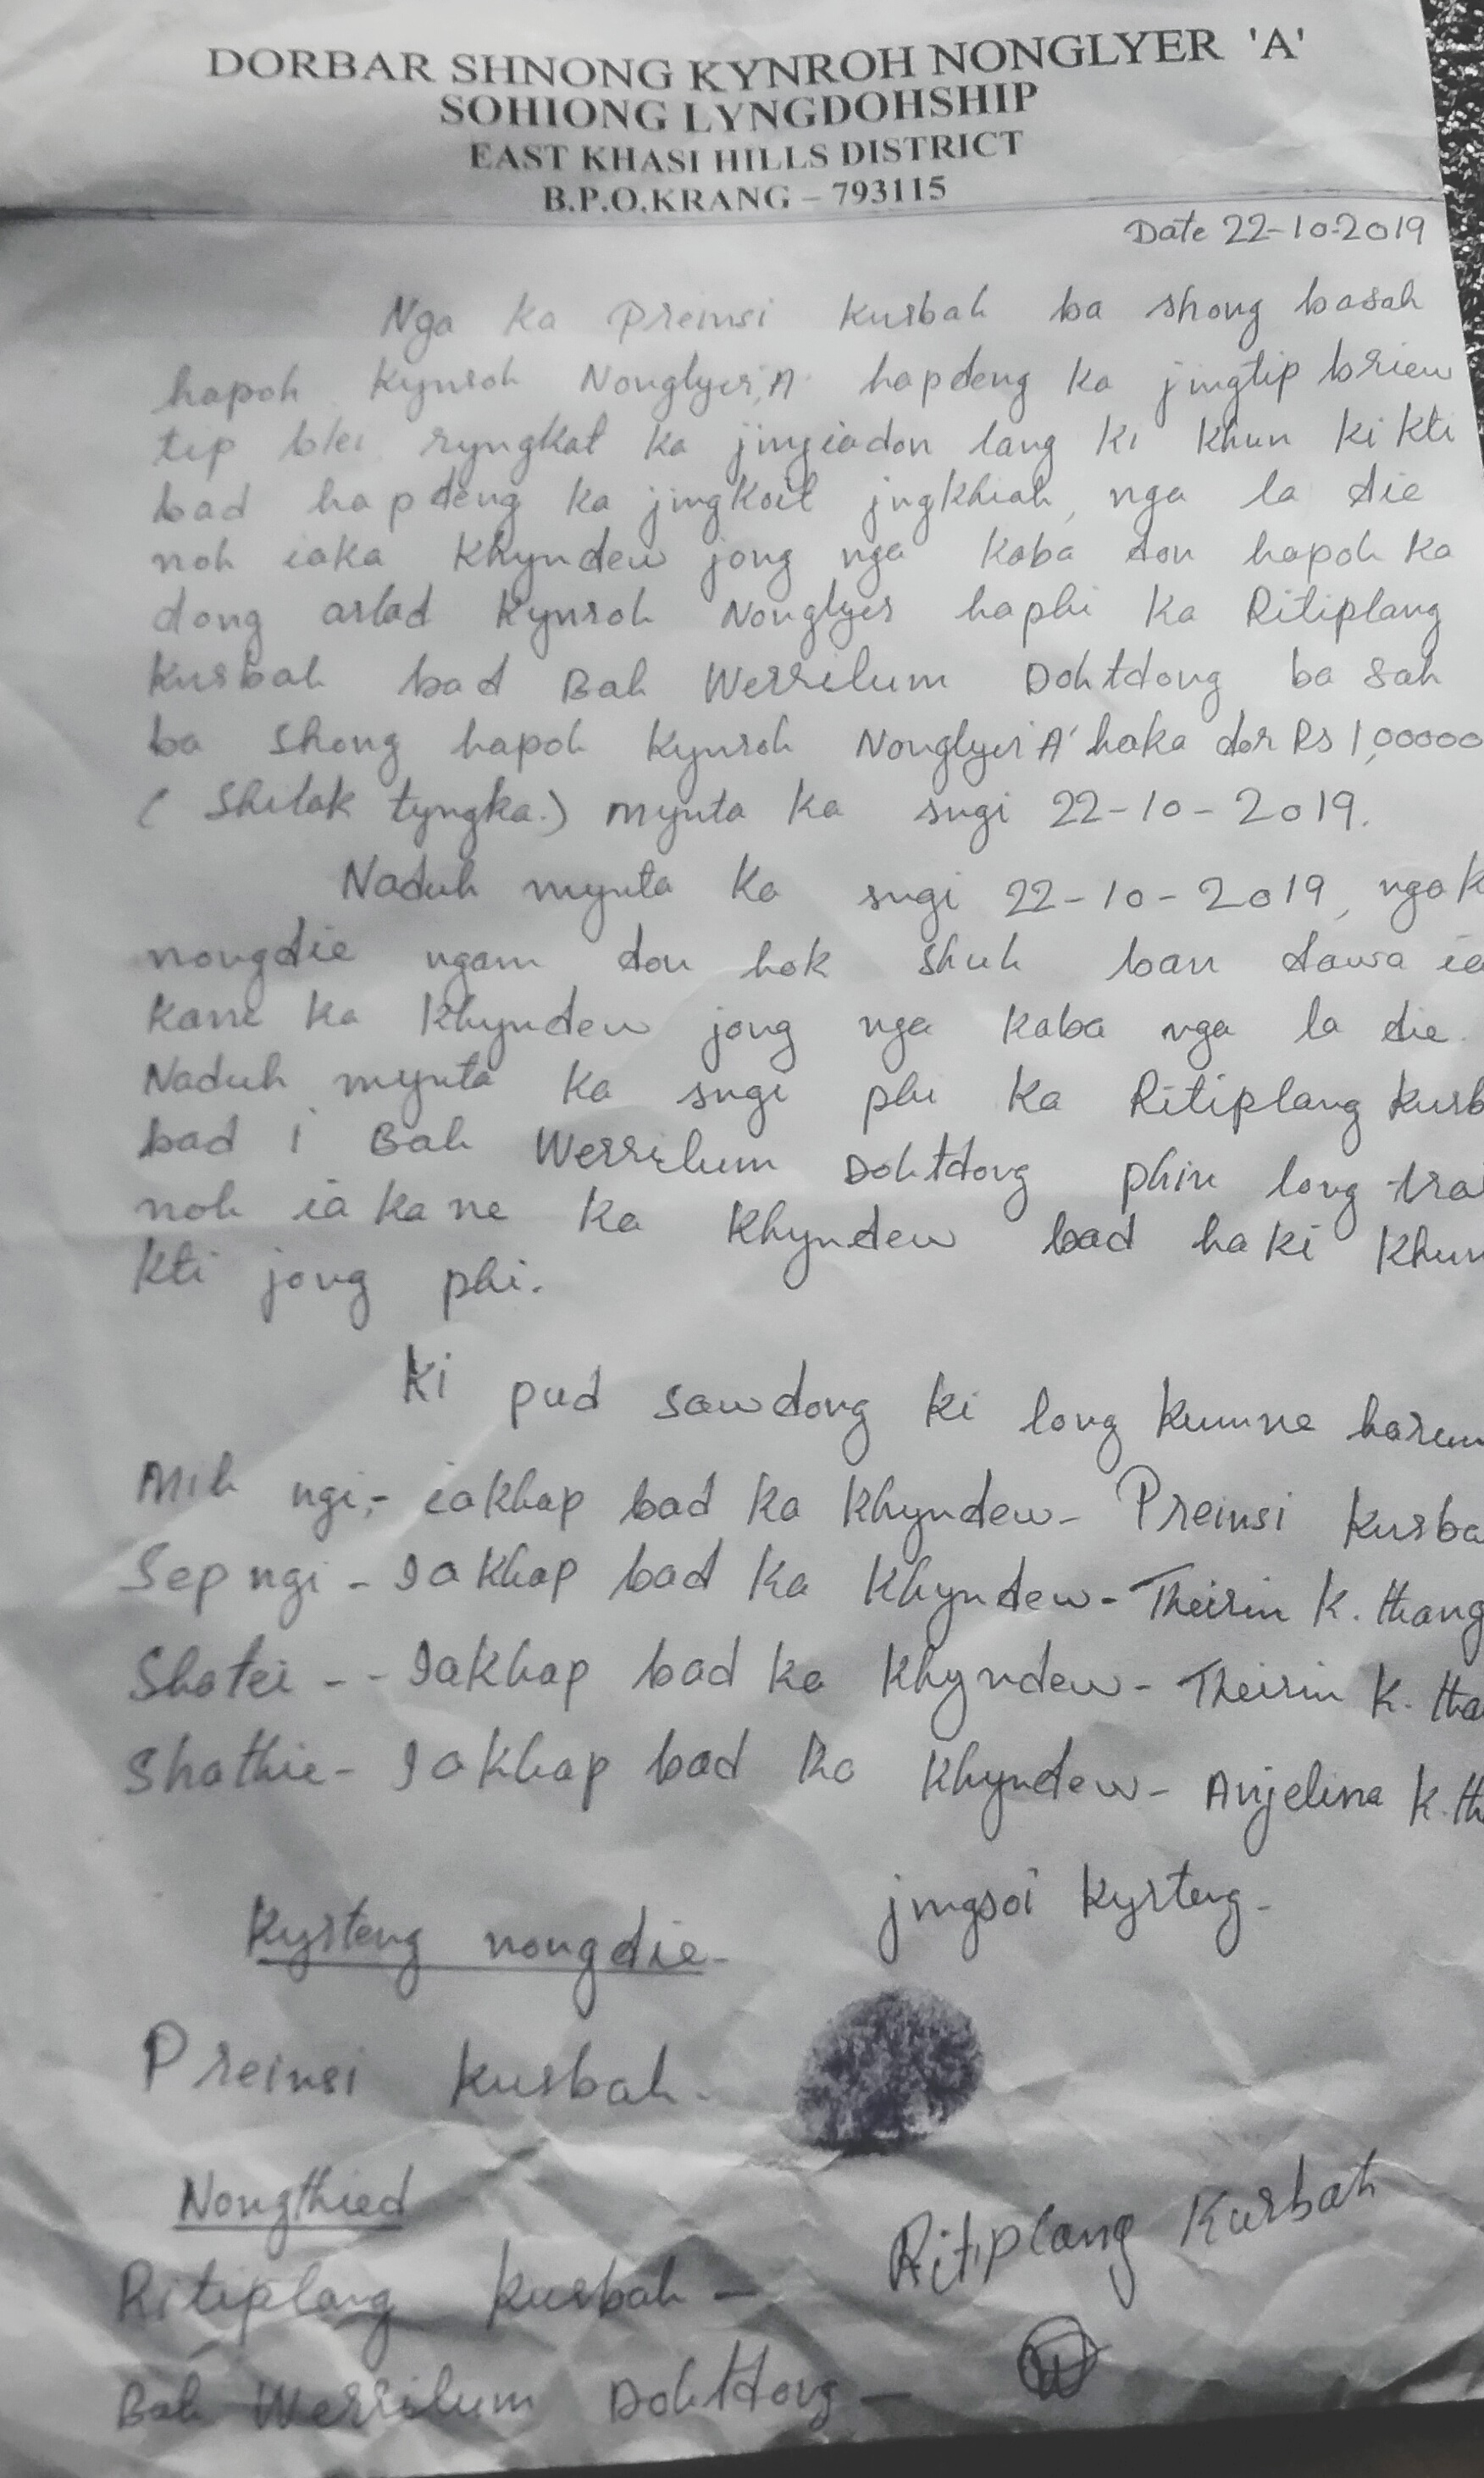 DORBAR SHNONG KYNROH NONGLYER 'A'
SOHIONG LYNGDOHSHIP
EAST KHASI HILLS DISTRICT
B.P.O.KRANG – 793115
Date 22-10-2019
Nga ka Preinsi Kurbah ba shong basah
hapoh Kynroh Nonglyer,'A' hapdeng ka jingtip briew
tip blei ryngkat ka jingiadon lang ki khun ki kti
bad hapdeng ka jingkoit jngkhiah, nga la die
noh iaka Khyndew jong nga kaba don hapoh ka
dong arlad Kynroh Nonglyer haphi ka Ritiplang
Kurbah bad Bah Werrilum Dohtdong ba sah
ba shong hapoh Kynroh Nonglyer 'A' haka dor Rs 1,00000
( Shilak tyngka.) mynta ka sngi 22-10-2019.
Naduh mynta ka sngi 22-10-2019, nga k
nongdie ngam don hok shuh ban dawa ia
kane ka khyndew jong nga kaba nga la die.
Naduh mynta ka sngi phi ka Ritiplang Kurb
bad i Bah Werrilum Dohtdong phin long trai
noh ia ka ne ka khyndew bad ha ki khun
kti jong phi.
Ki pud sawdong ki long kumne harum
Mih ngi,- iakhap bad ka khyndew- Preinsi Kurba
Sep ngi - Iakhap bad ka khyndew- Theirin K. thang
Shatei - - Iakhap bad ka khyndew- Theirin K. tha
Shathie- Iakhap bad ka khyndew- Anjelina K. th
jingsoi kyrteng-
Kyrteng nongdie-
Preinsi Kurbah-
Nongthied
Ritiplang Kurbah
Ritiplang Kurbah —
Bah Werrilum Dohtdong — W